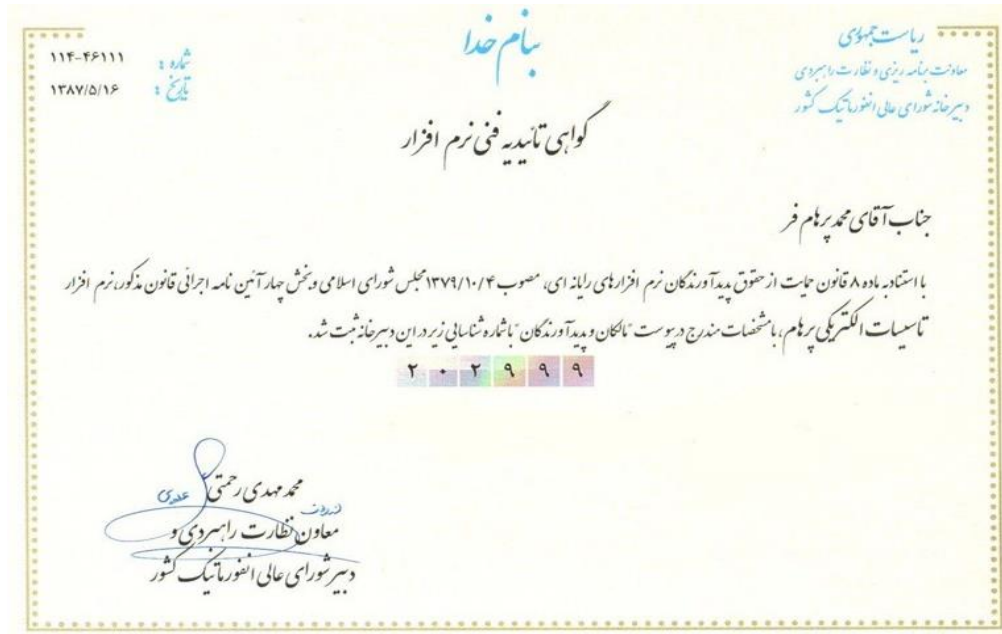 بنام خدا
ریاست جمهوری
معاونت برنامه ریزی و نظارت راهبردی
دبیرخانه شورای عالی انفورماتیک کشور
شماره : ۱۱۴-۴۶۱۱۱
تاریخ : ۱۳۸۷/۵/۱۶
گواهی تائیدیه فنی نرم افزار
جناب آقای محمد پرهام فر
با استناد به ماده ۸ قانون حمایت از حقوق پدیدآورندگان نرم افزارهای رایانه ای، مصوب ۱۳۷۹/۱۰/۴ مجلس شورای اسلامی و بخش چهار آئین نامه اجرائی قانون مذکور، نرم افزار
تاسیسات الکتریکی پرهام، با مشخصات مندرج در پیوست "مالکان و پدیدآورندگان" با شماره شناسایی زیر در این دبیرخانه ثبت شد.
۲۰۲۹۹۹
محمد مهدی رحمتی
معاون نظارت راهبردی و
دبیر شورای عالی انفورماتیک کشور